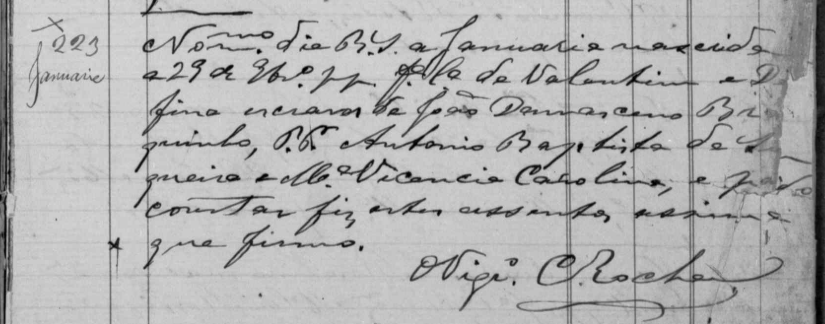 223
Januaria
No m.mo dia B. S. a Januaria nascida
a 29 de 9br.o pp. f.a l.a de Valentim e D
fina escravos de João Damasceno Br
quinho, P.P. Antonio Baptista de S
queira e M.a Vicencia Carolina, e para
constar fiz estes assentos assima
que firmo.
O Vigr.o C. Rocha